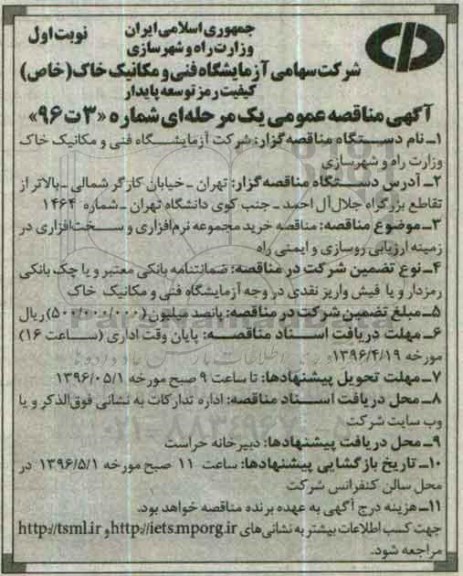 جمهوری اسلامی ایران
نوبت اول
وزارت راه و شهرسازی
شرکت سهامی آزمایشگاه فنی و مکانیک خاک (خاص)
کیفیت رمز توسعه پایدار
آگهی مناقصه عمومی یک مرحله‌ای شماره «۳ ت ۹۶»
۱ـ نام دستگاه مناقصه‌گزار: شرکت آزمایشگاه فنی و مکانیک خاک
وزارت راه و شهرسازی
۲ـ آدرس دستگاه مناقصه‌گزار: تهران ـ خیابان کارگر شمالی ـ بالاتر از
تقاطع بزرگراه جلال‌آل احمد ـ جنب کوی دانشگاه تهران ـ شماره ۱۴۶۴
۳ـ موضوع مناقصه: مناقصه خرید مجموعه نرم‌افزاری و سخت‌افزاری در
زمینه ارزیابی روسازی و ایمنی راه
۴ـ نوع تضمین شرکت در مناقصه: ضمانتنامه بانکی معتبر و یا چک بانکی
رمزدار و یا فیش واریز نقدی در وجه آزمایشگاه فنی و مکانیک خاک
۵ـ مبلغ تضمین شرکت در مناقصه: پانصد میلیون (۵۰۰/۰۰۰/۰۰۰) ریال
۶ـ مهلت دریافت اسناد مناقصه: پایان وقت اداری (ساعت ۱۶)
مورخه ۱۳۹۶/۴/۱۹
۷ـ مهلت تحویل پیشنهادها: تا ساعت ۹ صبح مورخه ۱۳۹۶/۰۵/۱
۸ـ محل دریافت اسناد مناقصه: اداره تدارکات به نشانی فوق‌الذکر و یا
وب سایت شرکت
۹ـ محل دریافت پیشنهادها: دبیرخانه حراست
۱۰ـ تاریخ بازگشایی پیشنهادها: ساعت ۱۱ صبح مورخه ۱۳۹۶/۵/۱ در
محل سالن کنفرانس شرکت
۱۱ـ هزینه درج آگهی به عهده برنده مناقصه خواهد بود.
جهت کسب اطلاعات بیشتر به نشانی‌های http://iets.mporg.ir و http://tsml.ir
مراجعه شود.